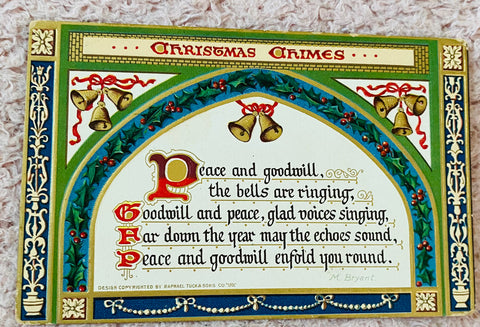 ··· CHRISTMAS CHIMES ···
Peace and goodwill,
the bells are ringing,
Goodwill and peace, glad voices singing,
Far down the year may the echoes sound,
Peace and goodwill enfold you round.
M. Bryant.
DESIGN COPYRIGHTED BY RAPHAEL TUCK & SONS CO